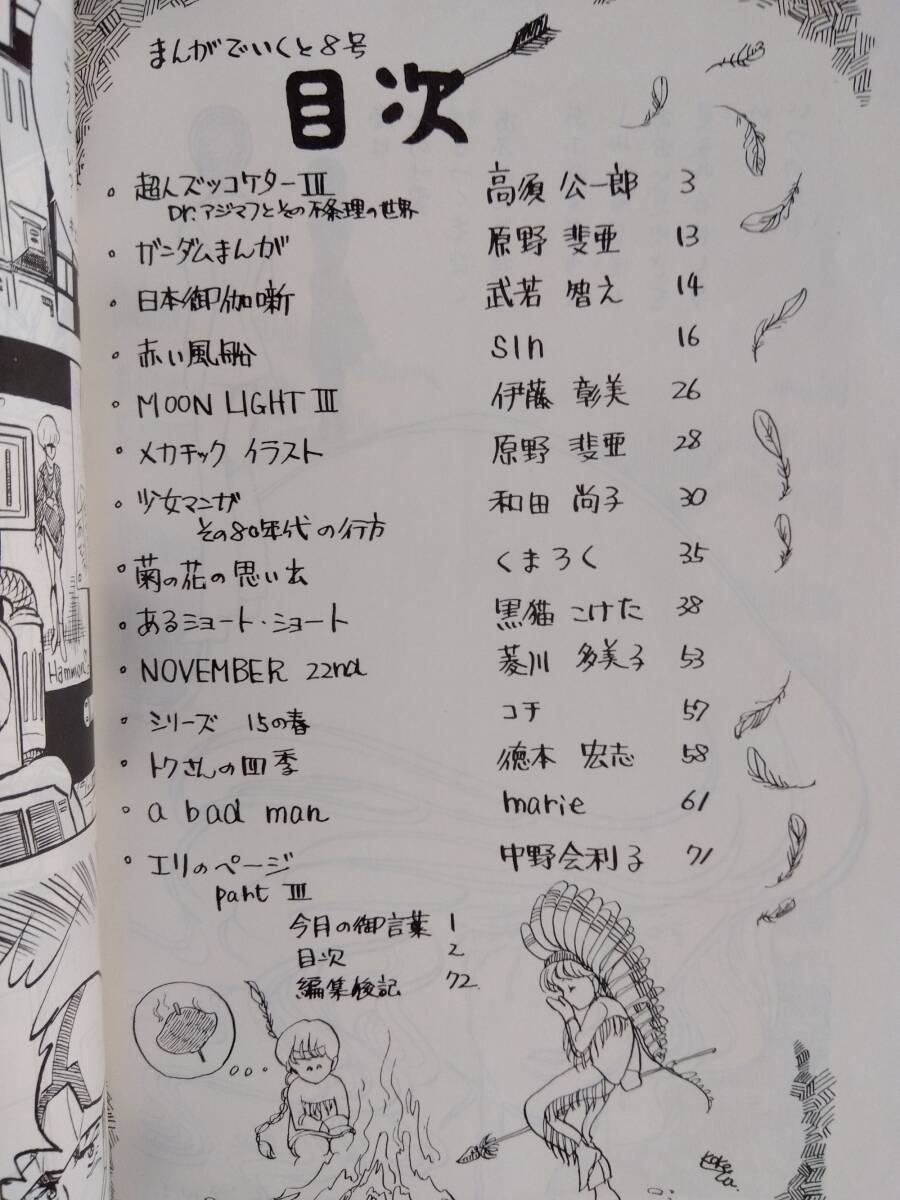 まんがでいくと8号
目次
・超人ズッコケターIII 高須 公一郎 3
Dr.アジマフとその不条理の世界
・ガンダムまんが 原野 斐亜 13
・日本御伽噺 武若 智え 14
・赤い風船 sin 16
・MOON LIGHT III 伊藤 彰美 26
・メカチック イラスト 原野 斐亜 28
・少女マンガ 和田 尚子 30
その80年代の行方
・菊の花の思い出 くまろく 35
・あるショート・ショート 黒猫 こけた 38
・NOVEMBER 22nd 菱川 多美子 53
・シリーズ 15の春 コチ 57
・トクさんの四季 徳本 宏志 58
・a bad man marie 61
・エリのページ 中野会利子 71
part III
今月の御言葉 1
目次 2
編集後記 72